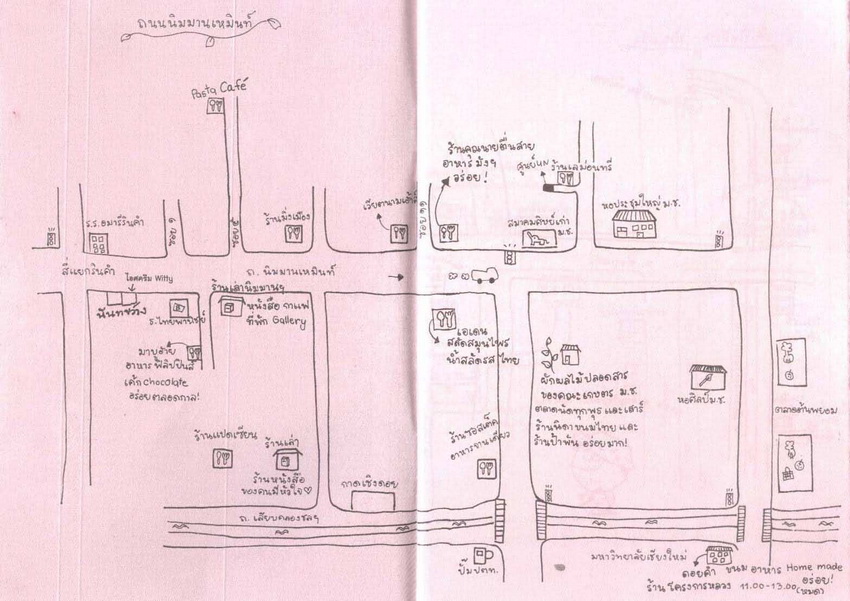 ถนนนิมมานเหมินท์
Pasta Café
ร้านคุณนายตื่นสาย
อาหาร มังฯ
อร่อย!
ศูนย์ UN
ร้านเลม่อนทรี
ร.ร.อมารีรินคำ
ซอย ๑
ซอย ๕
ร้านมิ่งเมือง
เวียดนาม
ซอย ๑๑
สมาคมศิษย์เก่า
ม.ช.
หอประชุมใหญ่ ม.ช.
สี่แยกรินคำ
ถ. นิมมานเหมินท์
ไอศครีม Witty
นันทขว้าง
ธ.ไทยพาณิชย์
ร้านเล่านิมมานฯ
หนังสือ กาแฟ
ที่พัก Gallery
มาบูฮ้าย
อาหาร ฟิลิปปินส์
เค้ก chocolate
อร่อยตลอดกาล!
เอเดน
สลัดสมุนไพร
น้ำสลัดรสไทย
ผักผลไม้ปลอดสาร
ของคณะเกษตร ม.ช.
ตลาดนัดทุกพุธ และเสาร์
ร้านพิดา ขนมไทย และ
ร้านป้าพัน อร่อยมาก!
หอศิลป์ ม.ช.
ตลาดต้นพยอม
ร้านแปดเซียน
ร้านเล่า
ร้านหนังสือ
ของคนมีหัวใจ♡
กาดเชิงดอย
ร้าน
อาหารจานเดียว
ถ. เลียบคลองชลฯ
ปั๊ม ปตท.
มหาวิทยาลัยเชียงใหม่
ดอยคำ ขนม อาหาร Home made
ร้าน โครงการหลวง 11.00-13.00 อร่อย!
(หมด)